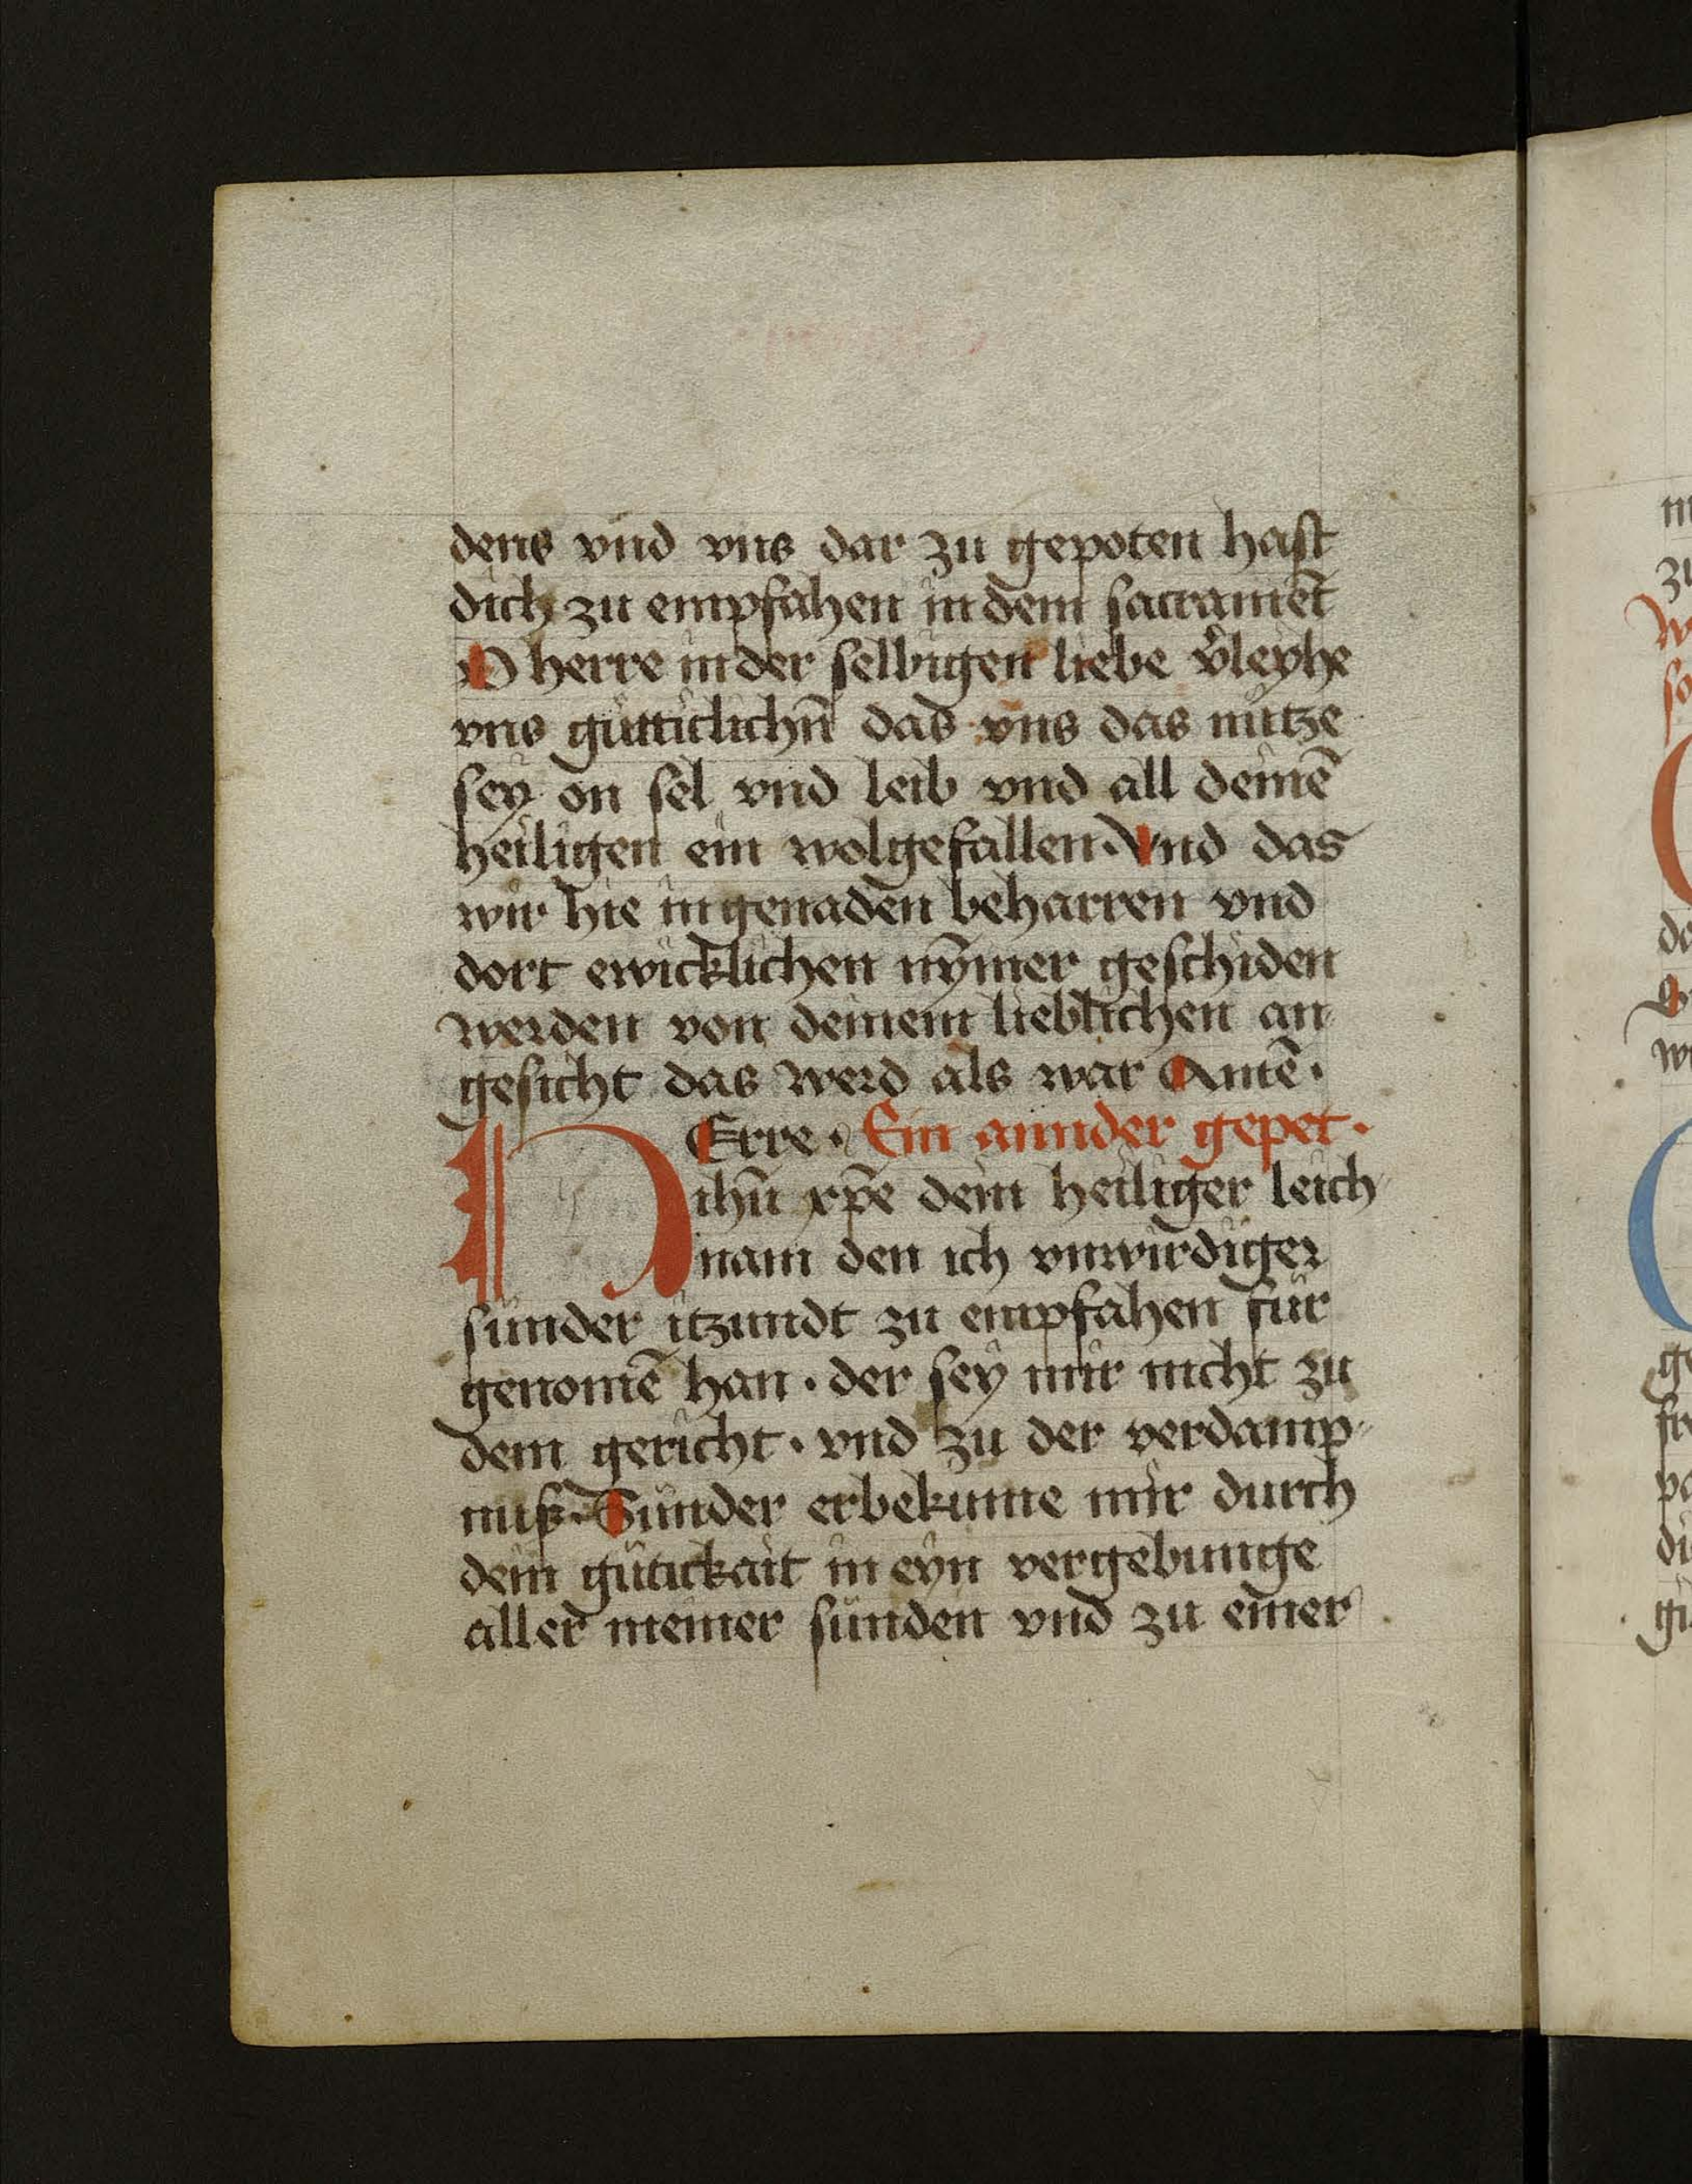 dens vnd vns dar zu gepoten hast
dich zu empfahen in dem sacramēt
O herre in der selbigen liebe v̾leyhe
vns gütticlichn̄ das vns das nütze
sey on sel vnd leib vnd all deinē
heiligen ein wolgefallen · Vnd das
wir hie in genaden beharren vnd
dort ewicklichen nȳmer geschiden
werden von deinem lieblichen an
gesicht das werd als war Amē ·
HErre · Ein annder gepet ·
ihū xp̄e dein heiliger leich
nam den ich vnwirdiger
sünder itzundt zu empfahen für
genomē han · der sey mir nicht zu
dem gericht · vnd zu der verdamp
nuß · Sünder erbekume mir durch
dein gütickait in eyn vergebunge
aller meiner sünden vnd zu einer